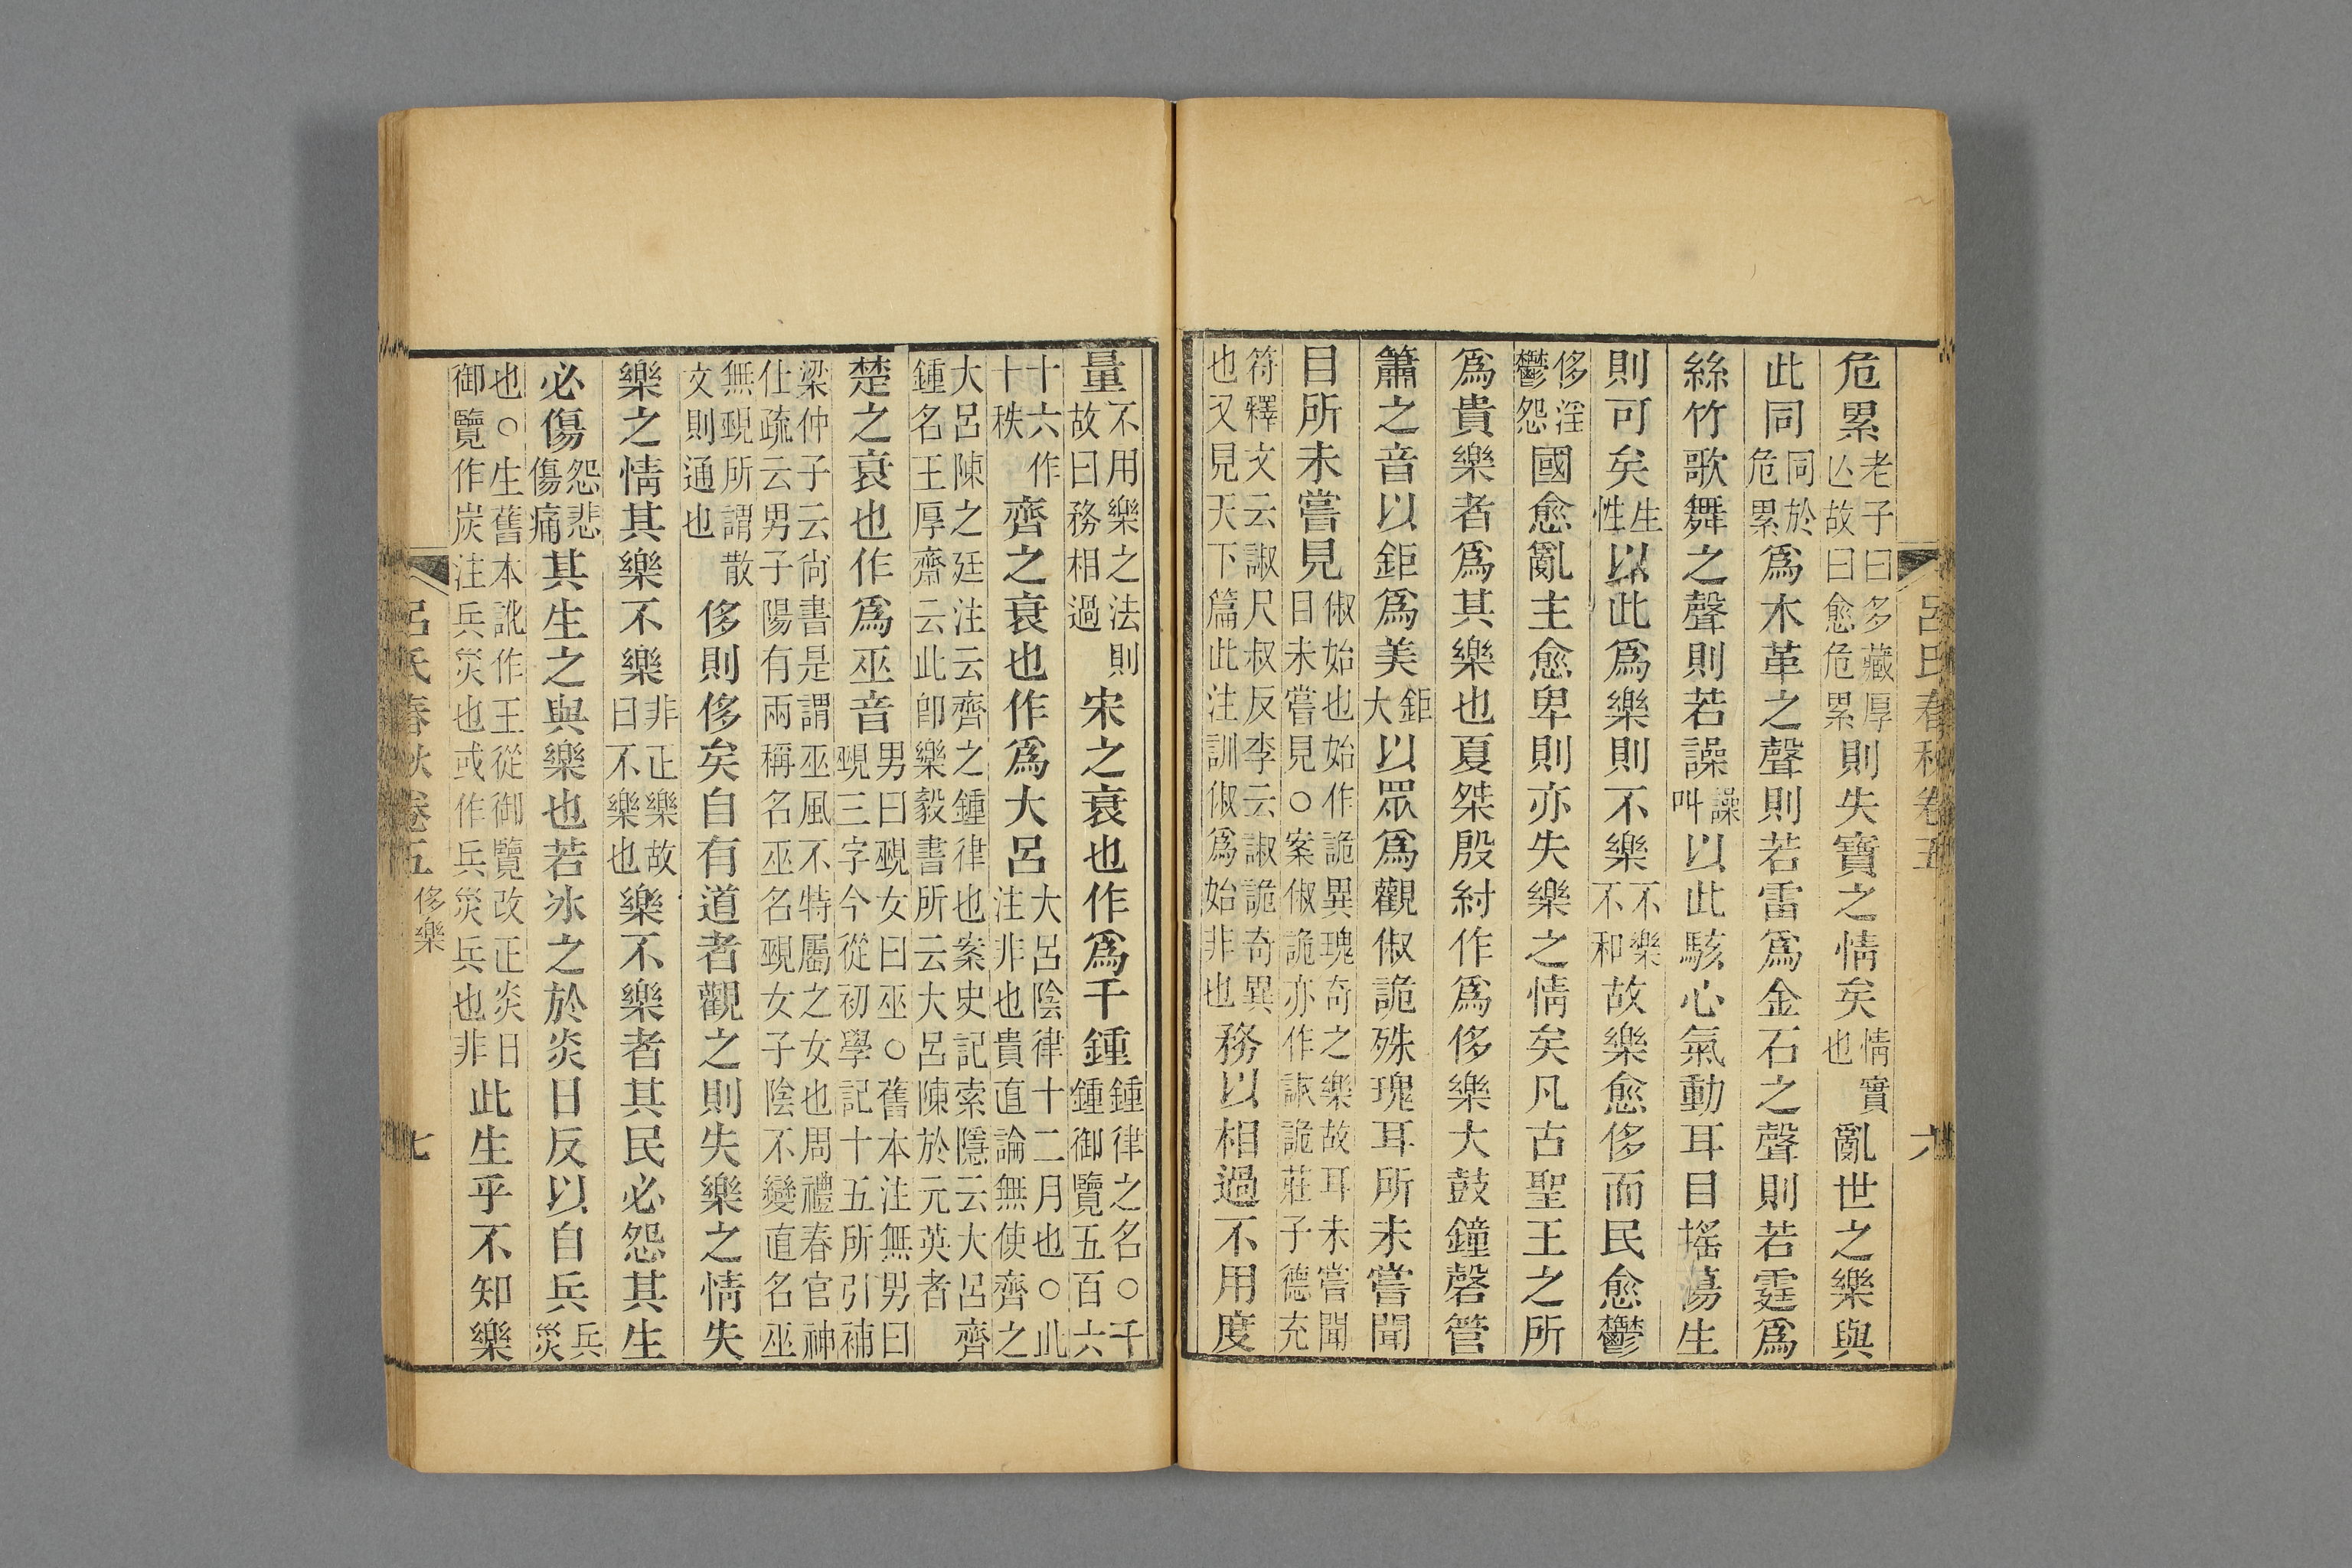 呂氏春秋卷五 六
危累老子曰多藏厚亾故曰愈危累則失寶之情矣情實也亂世之樂與
此同同於危累爲木革之聲則若雷爲金石之聲則若霆爲
絲竹歌舞之聲則若譟譟叫以此駭心氣動耳目搖蕩生
則可矣生性以此爲樂則不樂不樂不和故樂愈侈而民愈鬱
侈淫鬱怨國愈亂主愈卑則亦失樂之情矣凡古聖王之所
爲貴樂者爲其樂也夏桀殷紂作爲侈樂大鼓鐘磬管
簫之音以鉅爲美鉅大以眾爲觀俶詭殊瑰耳所未嘗聞
目所未嘗見俶始也始作詭異瑰奇之樂故耳未嘗聞目未嘗見○案俶詭亦作諔詭莊子德充
符釋文云諔尺叔反李云諔詭奇異也又見天下篇此注訓俶爲始非也務以相過不用度
量不用樂之法則故曰務相過宋之衰也作爲千鍾鍾律之名○千鍾御覽五百六
十六作十秩齊之衰也作爲大呂大呂陰律十二月也○此注非也貴直論無使齊之
大呂陳之廷注云齊之鍾律也案史記索隱云大呂齊鍾名王厚齋云此卽樂毅書所云大呂陳於元英者
楚之衰也作爲巫音男曰覡女曰巫○舊本注無男曰覡三字今從初學記十五所引補
梁仲子云尙書是謂巫風不特屬之女也周禮春官神仕疏云男子陽有兩稱名巫名覡女子陰不變直名巫
無覡所謂散文則通也侈則侈矣自有道者觀之則失樂之情失
樂之情其樂不樂非正樂故曰不樂也樂不樂者其民必怨其生
必傷怨悲傷痛其生之與樂也若冰之於炎日反以自兵兵災
也○生舊本訛作王從御覽改正炎日御覽作炭注兵災也或作兵災兵也非此生乎不知樂
呂氏春秋卷五 侈樂 七